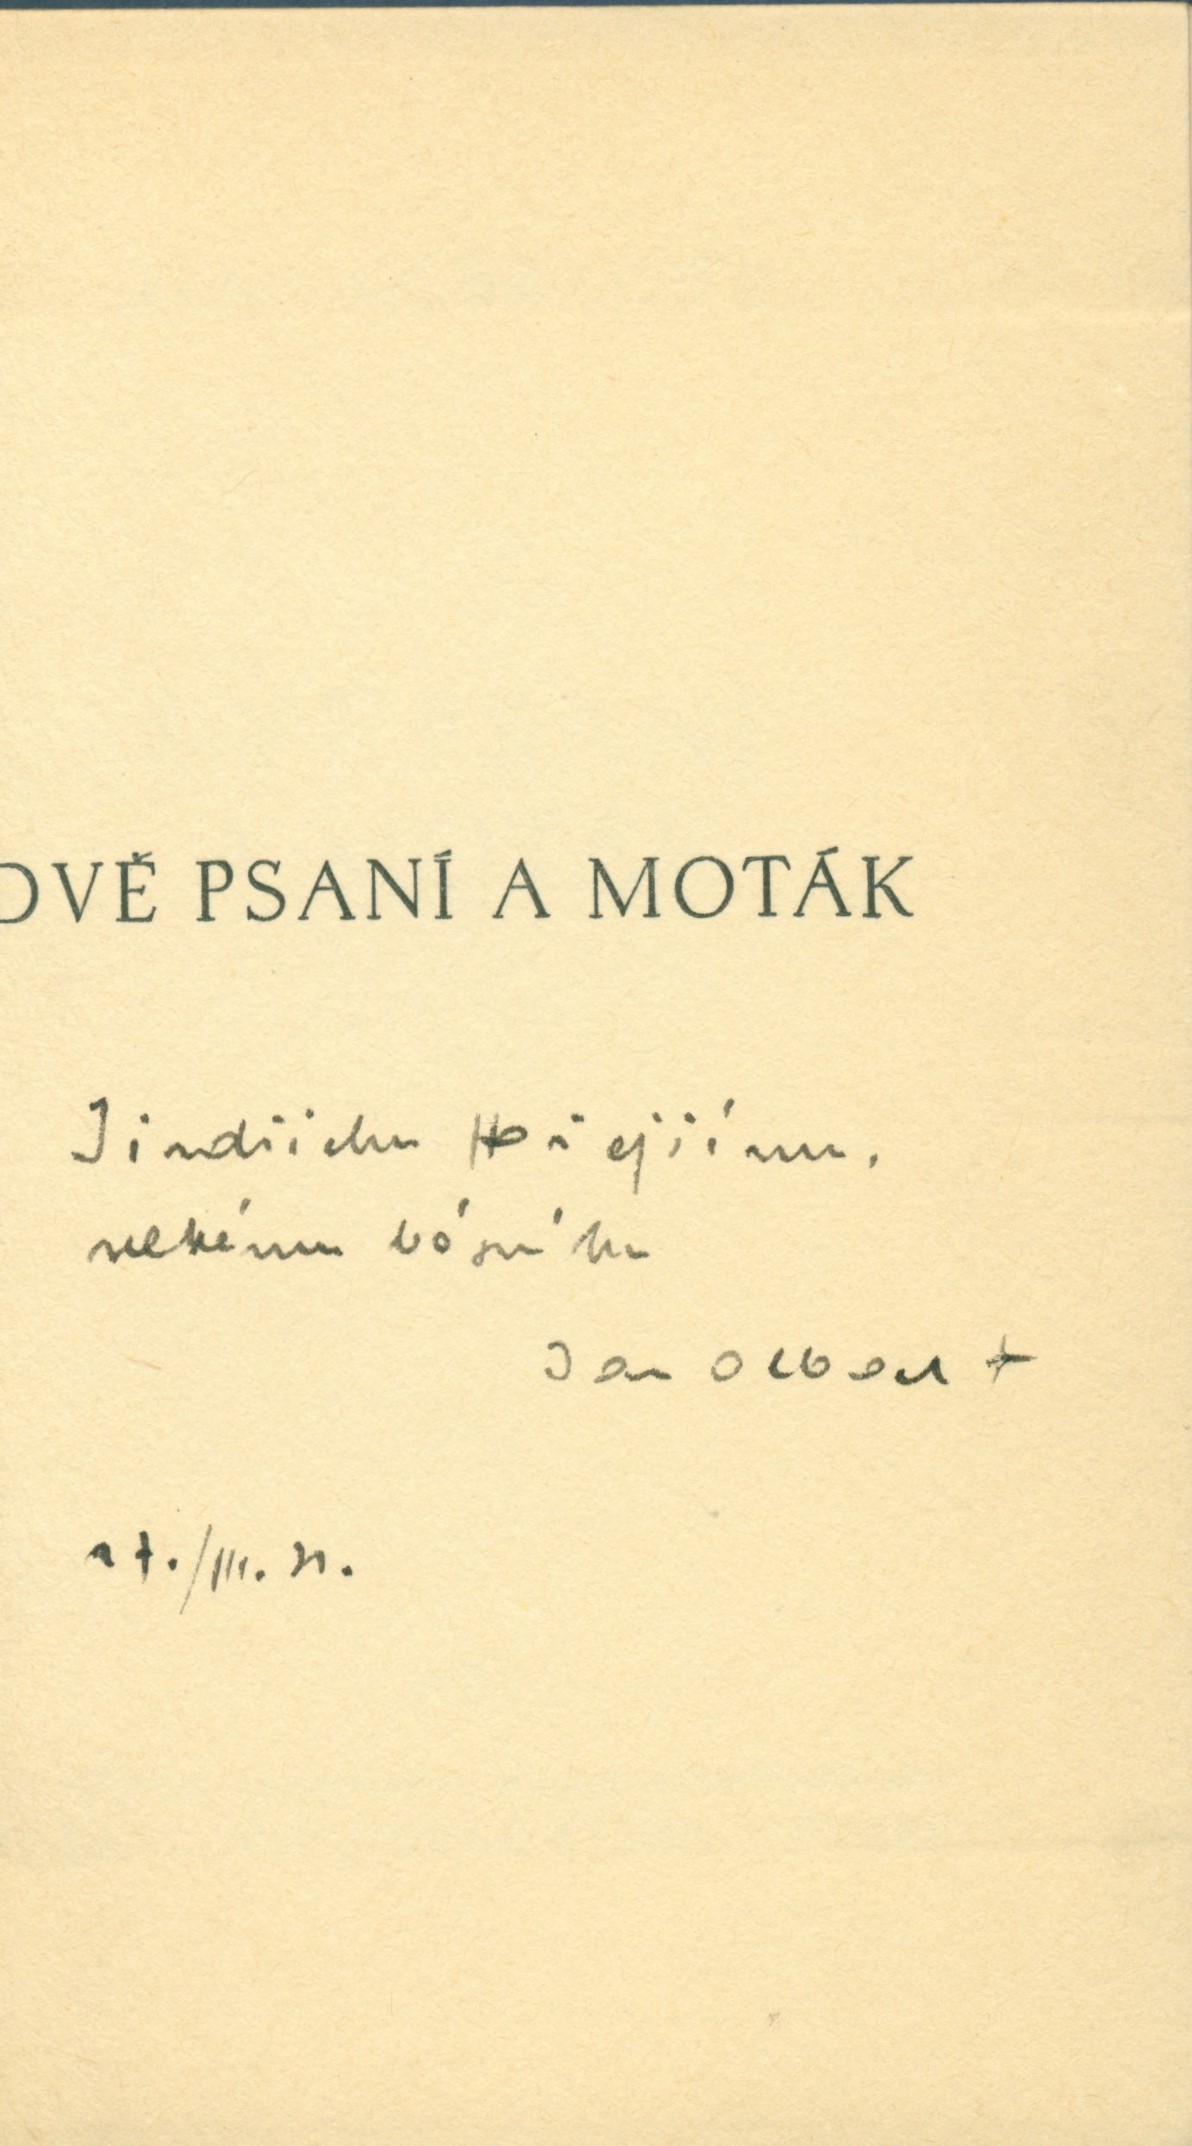 DVĚ PSANÍ A MOTÁK
Jindřichu Hořejšímu,
velkému básníku
Jan Albert
17./III. 31.